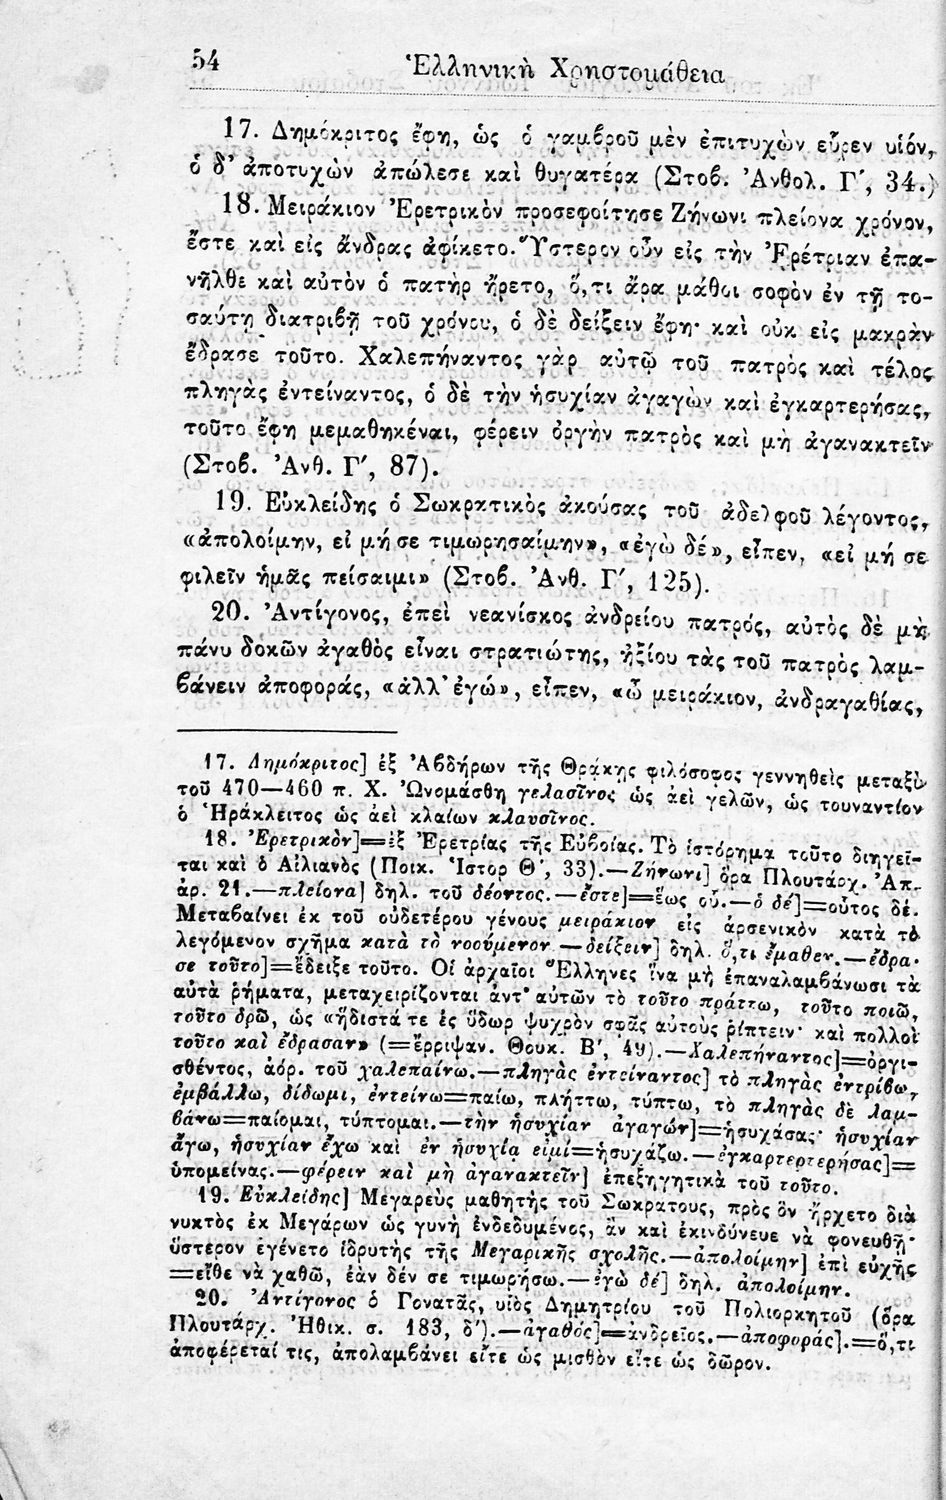 54
Ἑλληνικὴ Χρηστομάθεια
17. Δημόκριτος ἔφη, ὡς ὁ γαμϐροῦ μὲν ἐπιτυχὼν εὗρεν υἱόν,
ὁ δ' ἀποτυχὼν ἀπώλεσε καὶ θυγατέρα (Στοϐ. Ἀνθολ. Γ', 34.)
18. Μειράκιον Ἐρετρικὸν προσεφοίτησε Ζήνωνι πλείονα χρόνον,
ἔστε καὶ εἰς ἄνδρας ἀφίκετο. Ὕστερον οὖν εἰς τὴν Ἐρέτριαν ἐπα-
νῆλθε καὶ αὐτὸν ὁ πατὴρ ἤρετο, ὅ,τι ἄρα μάθοι σοφὸν ἐν τῇ το-
σαύτῃ διατριϐῇ τοῦ χρόνου, ὁ δὲ δείξειν ἔφη· καὶ οὐκ εἰς μακρὰν
ἔδρασε τοῦτο. Χαλεπήναντος γὰρ αὐτῷ τοῦ πατρὸς καὶ τέλος
πληγὰς ἐντείναντος, ὁ δὲ τὴν ἡσυχίαν ἀγαγὼν καὶ ἐγκαρτερήσας,
τοῦτο ἔφη μεμαθηκέναι, φέρειν ὀργὴν πατρὸς καὶ μὴ ἀγανακτεῖν
(Στοϐ. Ἀνθ. Γ', 87).
19. Εὐκλείδης ὁ Σωκρατικὸς ἀκούσας τοῦ ἀδελφοῦ λέγοντος,
«ἀπολοίμην, εἰ μή σε τιμωρησαίμην», «ἐγὼ δέ», εἶπεν, «εἰ μή σε
φιλεῖν ἡμᾶς πείσαιμι» (Στοϐ. Ἀνθ. Γ', 125).
20. Ἀντίγονος, ἐπεὶ νεανίσκος ἀνδρείου πατρός, αὐτὸς δὲ μὴ
πάνυ δοκῶν ἀγαθὸς εἶναι στρατιώτης, ἠξίου τὰς τοῦ πατρὸς λαμ-
ϐάνειν ἀποφοράς, «ἀλλ' ἐγώ», εἶπεν, «ὦ μειράκιον, ἀνδραγαθίας,
17. Δημόκριτος] ἐξ Ἀϐδήρων τῆς Θρᾴκης φιλόσοφος γεννηθεὶς μεταξὺ
τοῦ 470—460 π. Χ. Ὠνομάσθη γελασῖνος ὡς ἀεὶ γελῶν, ὡς τουναντίον
ὁ Ἡράκλειτος ὡς ἀεὶ κλαίων κλαυσῖνος.
18. Ἐρετρικὸν]=ἐξ Ἐρετρίας τῆς Εὐϐοίας. Τὸ ἱστόρημα τοῦτο διηγεῖ-
ται καὶ ὁ Αἰλιανὸς (Ποικ. Ἱστορ Θ', 33).—Ζήνωνι] ὅρα Πλουτάρχ. Ἀπ.
ἀρ. 21.—πλείονα] δηλ. τοῦ δέοντος.—ἔστε]=ἕως οὗ.—ὁ δέ]=οὗτος δέ.
Μεταϐαίνει ἐκ τοῦ οὐδετέρου γένους μειράκιον εἰς ἀρσενικὸν κατὰ τὸ
λεγόμενον σχῆμα κατὰ τὸ νοούμενον.—δείξειν] δηλ. ὅ,τι ἔμαθεν.—ἔδρα-
σε τοῦτο]=ἔδειξε τοῦτο. Οἱ ἀρχαῖοι Ἕλληνες ἵνα μὴ ἐπαναλαμϐάνωσι τὰ
αὐτὰ ῥήματα, μεταχειρίζονται ἀντ' αὐτῶν τὸ τοῦτο πράττω, τοῦτο ποιῶ,
τοῦτο δρῶ, ὡς «ἥδιστά τε ἐς ὕδωρ ψυχρὸν σφᾶς αὐτοὺς ῥίπτειν· καὶ πολλοὶ
τοῦτο καὶ ἔδρασαν» (=ἔρριψαν. Θουκ. Β', 49).—Χαλεπήναντος]=ὀργι-
σθέντος, ἀόρ. τοῦ χαλεπαίνω.—πληγὰς ἐντείναντος] τὸ πληγὰς ἐντρίϐω,
ἐμϐάλλω, δίδωμι, ἐντείνω=παίω, πλήττω, τύπτω, τὸ πληγὰς δὲ λαμ-
ϐάνω=παίομαι, τύπτομαι.—τὴν ἡσυχίαν ἀγαγών]=ἡσυχάσας· ἡσυχίαν
ἄγω, ἡσυχίαν ἔχω καὶ ἐν ἡσυχίᾳ εἰμί=ἡσυχάζω.—ἐγκαρτερτερήσας]=
ὑπομείνας.—φέρειν καὶ μὴ ἀγανακτεῖν] ἐπεξηγητικὰ τοῦ τοῦτο.
19. Εὐκλείδης] Μεγαρεὺς μαθητὴς τοῦ Σωκράτους, πρὸς ὃν ἤρχετο διὰ
νυκτὸς ἐκ Μεγάρων ὡς γυνὴ ἐνδεδυμένος, ἂν καὶ ἐκινδύνευε νὰ φονευθῇ·
ὕστερον ἐγένετο ἱδρυτὴς τῆς Μεγαρικῆς σχολῆς.—ἀπολοίμην] ἐπὶ εὐχῆς
=εἴθε νὰ χαθῶ, ἐὰν δέν σε τιμωρήσω.—ἐγὼ δέ] δηλ. ἀπολοίμην.
20. Ἀντίγονος ὁ Γονατᾶς, υἱὸς Δημητρίου τοῦ Πολιορκητοῦ (ὅρα
Πλουτάρχ. Ἠθικ. σ. 183, δ').—ἀγαθός]=ἀνδρεῖος.—ἀποφοράς].=ὅ,τι
ἀποφέρεταί τις, ἀπολαμϐάνει εἴτε ὡς μισθὸν εἴτε ὡς δῶρον.